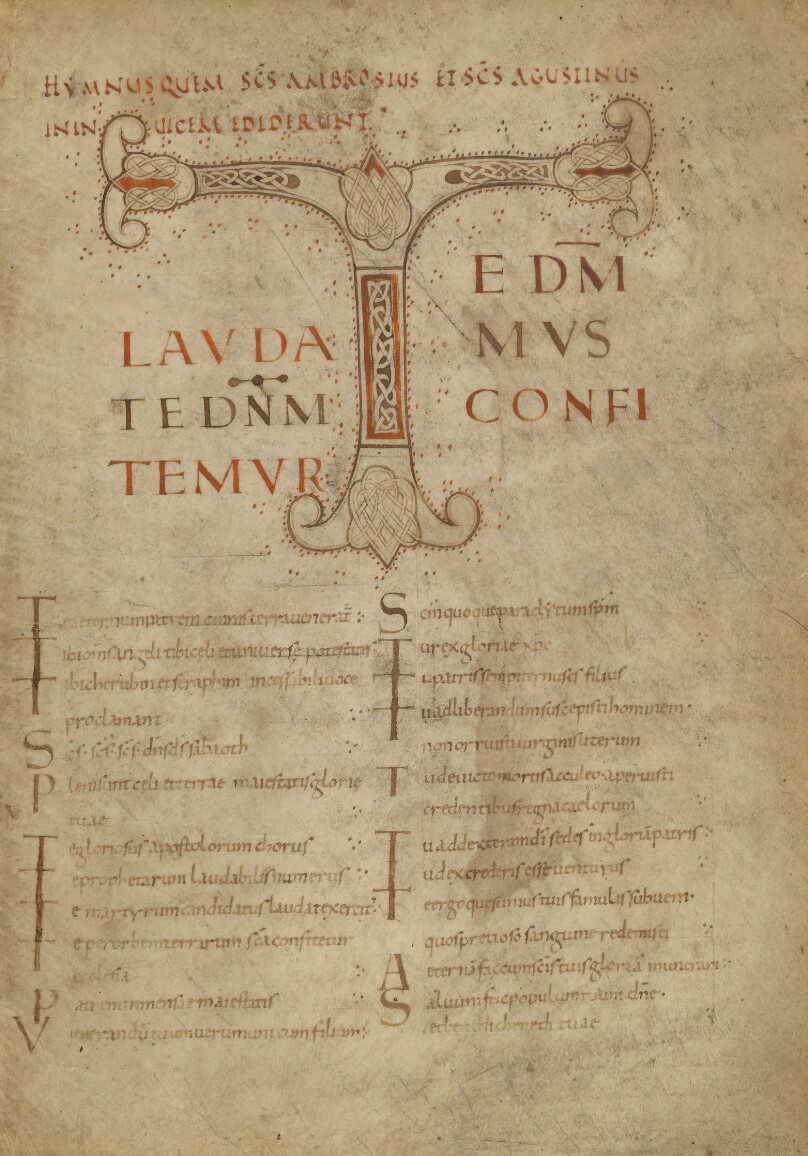 HYMNUS QUEM SC̄S AMBROSIUS ET SC̄S AGUSTINUS
INVICEM EDIDERUNT
TE DM̄
LAVDAMVS
TE DN̄M CONFI
TEMVR
Te aeternum patrem omnis terra venerat̄
Tibi om̄s angeli tibi celi et universe potestates
Tibi cherubin et seraphim incessibili voce
proclamant
Sc̄s sc̄s sc̄s dn̄s ds̄ sabaoth
Pleni sunt celi et terrae maiestatis glorie
tuae
Te gloriosus apostolorum chorus
Te prophetarum laudabilis numerus
Te martyrum candidatus laudat exercit
Te per orbem terrarum sc̄a confitetur
ecclesia
Patrem inmense maiestatis
Venerandū tuum verum unicum filium
Sc̄m quoque paraclytum sp̄m
Tu rex gloriae xpe
Tu patris sempiternus es filius
Tu ad liberandum suscepisti hominem
non orruisti virginis uterum
Tu devicto mortis acculeo aperuisti
credentibus regna caelorum
Tu ad dexteram dī sedes in gloriā patris
Iudex crederis esse venturus
Te ergo quesumus tuis famulis subveni
quos pretioso sanguine redemisti
Aeternā fac cum sc̄is tuis gloriā munerari
Salvum fac populum tuum dn̄e
et benedic heredi tuae